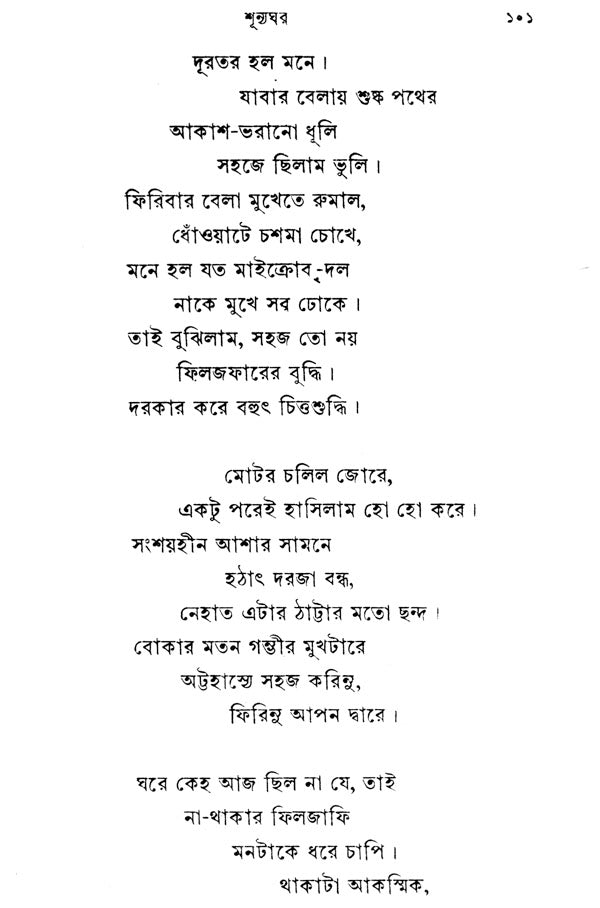 শূন্যঘর ১০১
দূরতর হল মনে।
যাবার বেলায় শুষ্ক পথের
আকাশ-ভরানো ধূলি
সহজে ছিলাম ভুলি।
ফিরিবার বেলা মুখেতে রুমাল,
ধোঁওয়াটে চশমা চোখে,
মনে হল যত মাইক্রোব্‌-দল
নাকে মুখে সব ঢোকে।
তাই বুঝিলাম, সহজ তো নয়
ফিলজফারের বুদ্ধি।
দরকার করে বহুৎ চিত্তশুদ্ধি।
মোটর চলিল জোরে,
একটু পরেই হাসিলাম হো হো করে।
সংশয়হীন আশার সামনে
হঠাৎ দরজা বন্ধ,
নেহাত এটার ঠাট্টার মতো ছন্দ।
বোকার মতন গম্ভীর মুখটারে
অট্টহাস্যে সহজ করিনু,
ফিরিনু আপন দ্বারে।
ঘরে কেহ আজ ছিল না যে, তাই
না-থাকার ফিলজাফি
মনটাকে ধরে চাপি।
থাকাটা আকস্মিক,